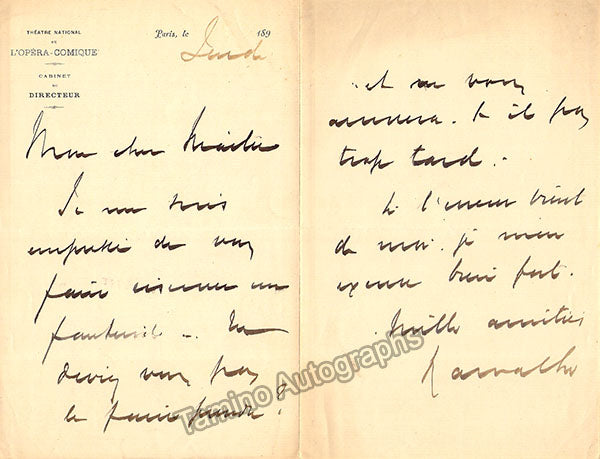 THÉATRE NATIONAL
DE
L'OPÉRA-COMIQUE
CABINET
DU
DIRECTEUR
Paris, le 189
Lundi
Mon cher Maître
Je me suis
empressé de vous
faire une
fauteuil. Ne
deviez vous pas
le faire prendre ?
et ne vous
arrivera-t-il pas
trop tard.
Si l'erreur vient
de moi. je m'en
excuse bien fort.
Mille amitiés
Carvalho
Tamino Autographs